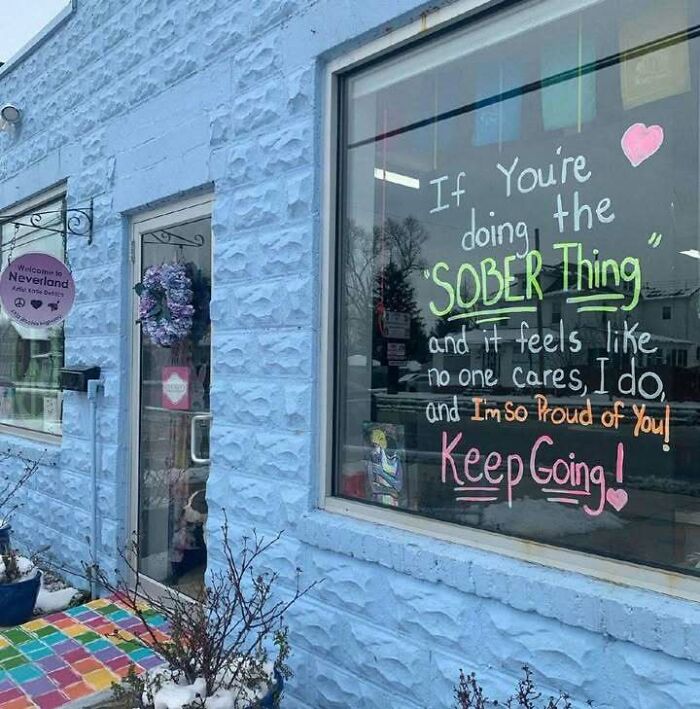 Welcome to
Neverland
If You're
doing the
"SOBER Thing"
and it feels like
no one cares, I do,
and I'm so Proud of You!
Keep Going!